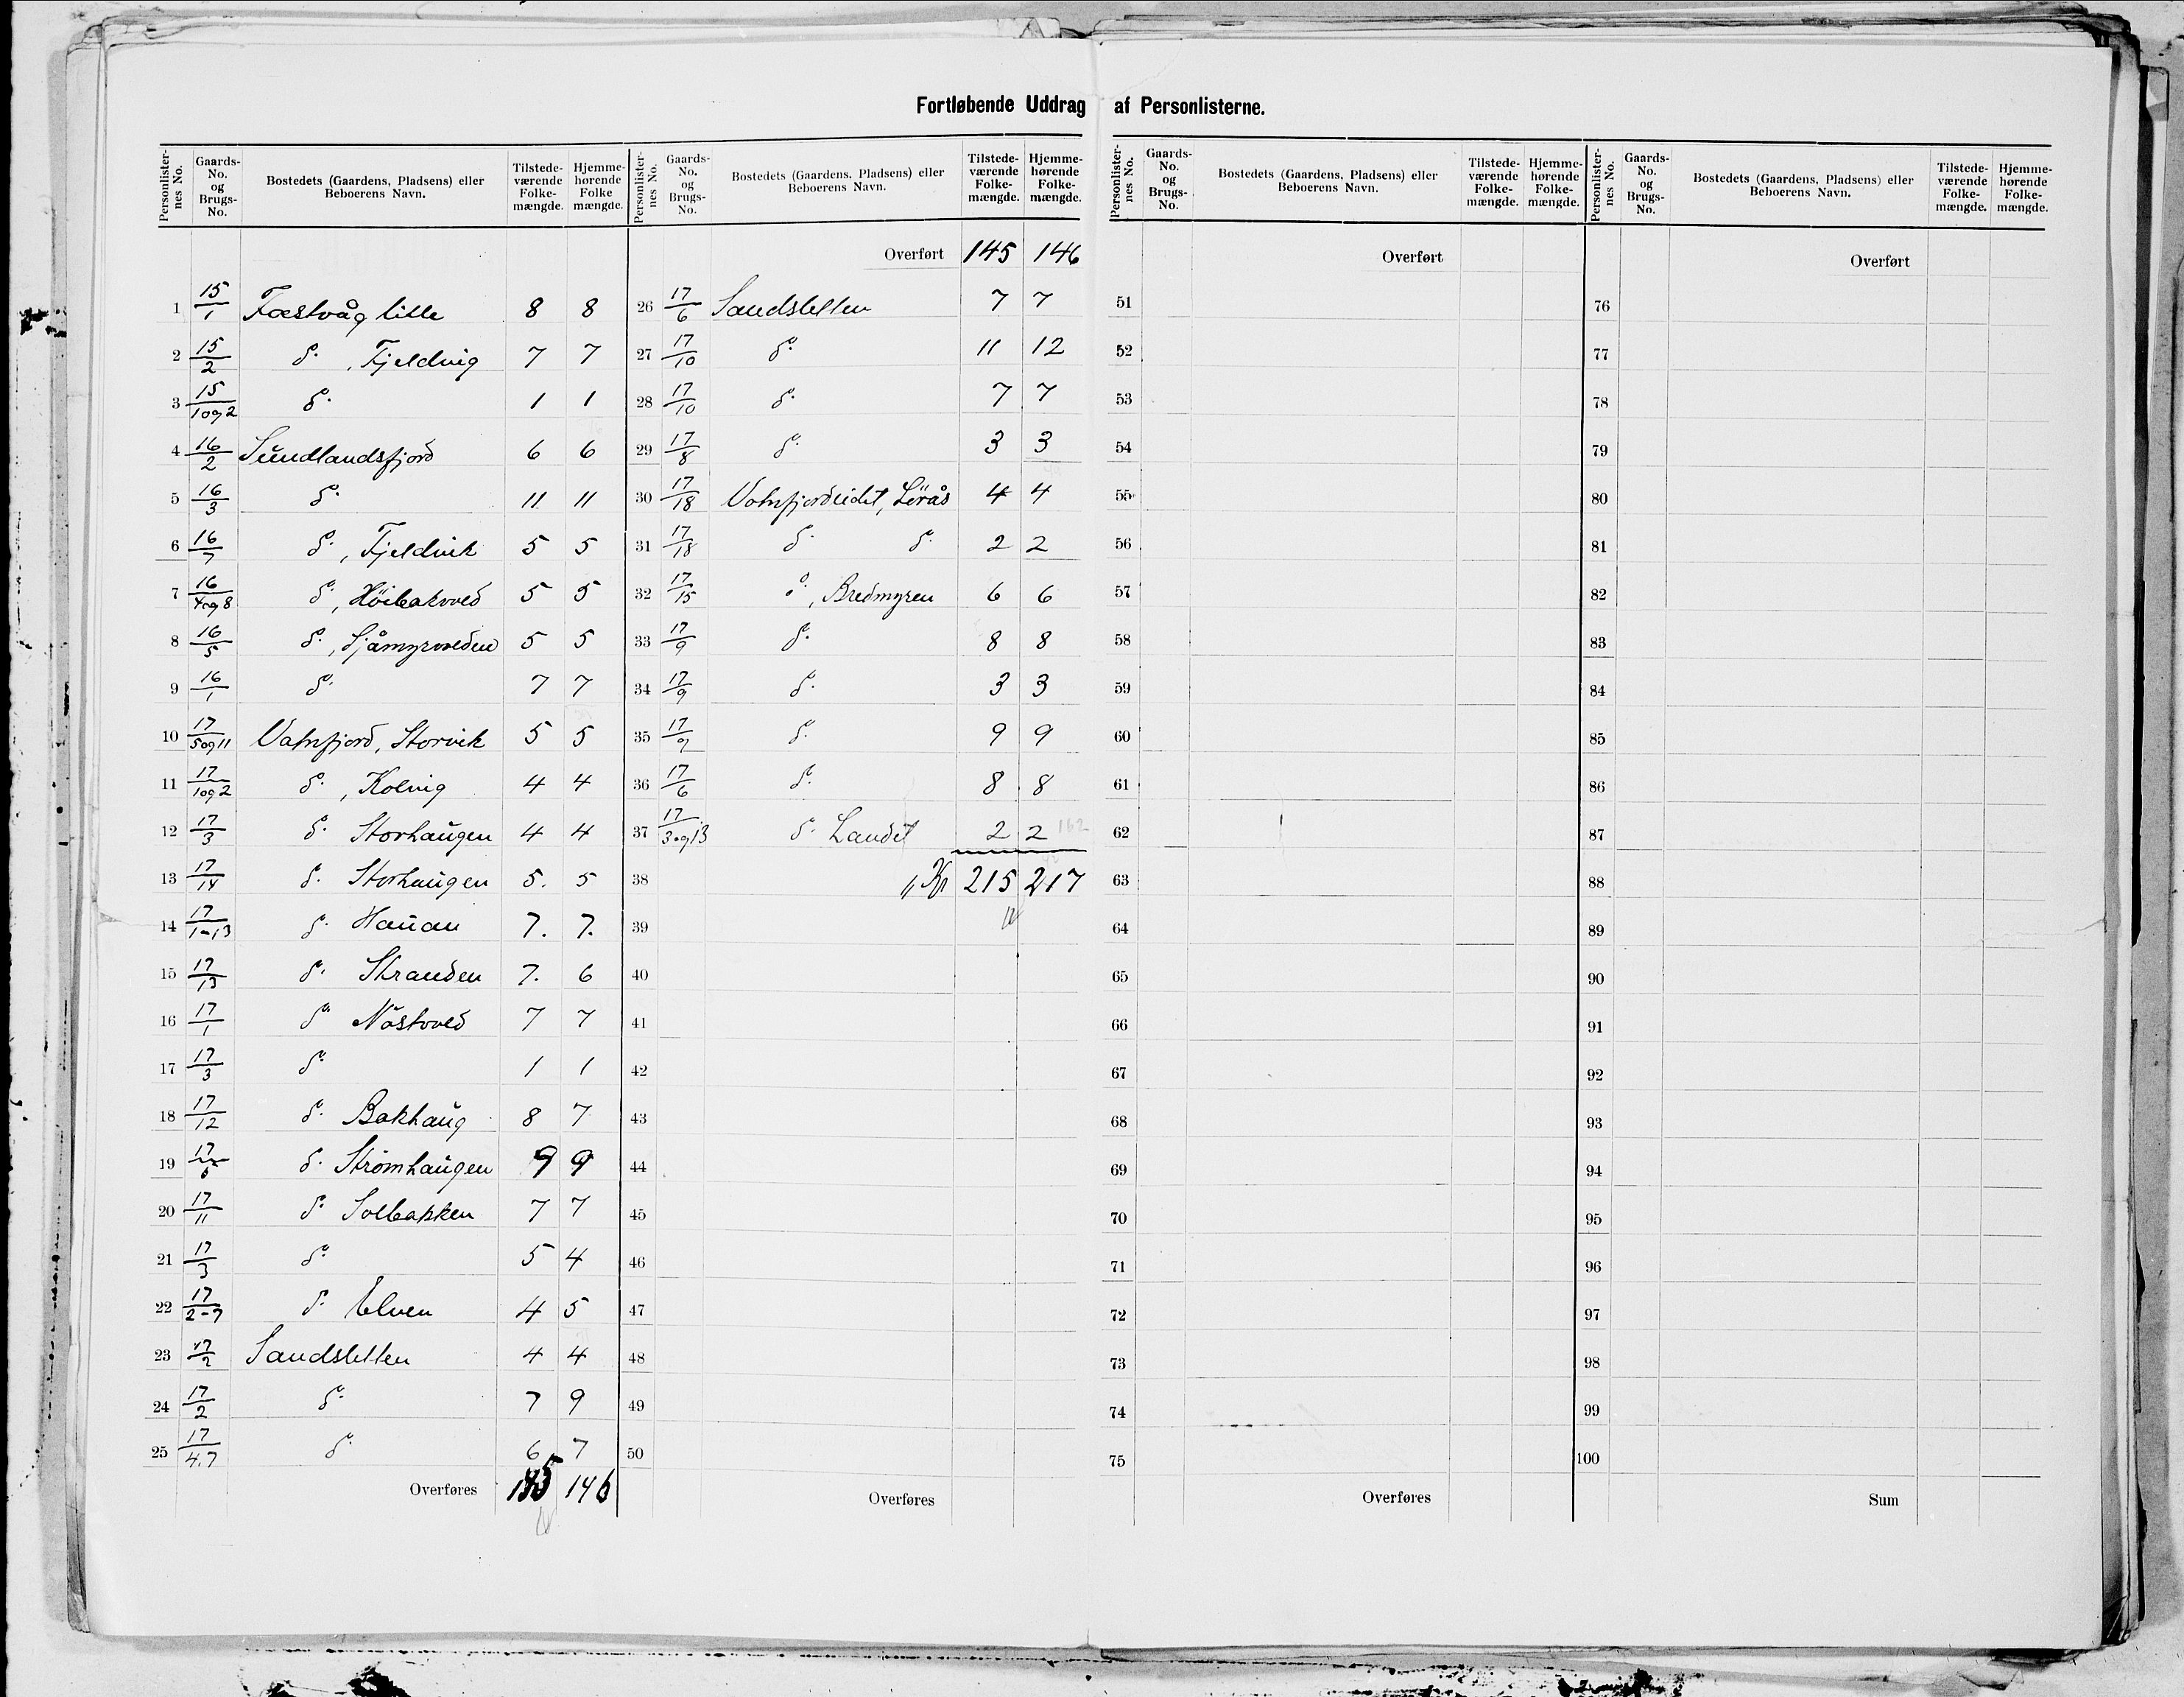 Fortløbende Uddrag af Personlisterne.
Personlisternes No. | Gaards-No. og Brugs-No. | Bostedets (Gaardens, Pladsens) eller Beboerens Navn. | Tilstedeværende Folkemængde. | Hjemmehørende Folke mængde.
1 15/1 Fæstvåg lille 8 8
2 15/2 do. , Fjeldvig 7 7
3 15/1 og 2 do. 1 1
4 16/2 Sundlandsfjord 6 6
5 16/3 do. 11 11
6 16/7 do. , Fjeldvik 5 5
7 16/4 og 8 do. , Höibakved 5 5
8 16/5 do. , Sjåmyrveden 5 5
9 16/1 do. 7 7
10 17/5 og 11 Vatnfjord, Storvik 5 5
11 17/1 og 2 do. , Kolvig 4 4
12 17/3 do. Storhaugen 4 4
13 17/14 do. Storhaugen 5. 5
14 17/1-13 do. Hauan 7. 7.
15 17/13 do. Stranden 7. 6
16 17/1 do. Nöstved 7 7
17 17/3 do. 1 1
18 17/12 do. Bakhaug 8 7
19 17/5 do. Strömhaugen 9 9
20 17/11 do. Solbakken 7 7
21 17/3 do. 5 4
22 17/2-7 do. Elven 4 5
23 17/2 Sandsletten 4 4
24 17/2 do. 7 9
25 17/4.7 do. 6 7
Overføres 145 146
Personlisternes No. | Gaards-No. og Brugs-No. | Bostedets (Gaardens, Pladsens) eller Beboerens Navn. | Tilstedeværende Folkemængde. | Hjemmehørende Folkemængde.
Overført 145 146
26 17/6 Sandsletten 7 7
27 17/10 do. 11 12
28 17/10 do. 7 7
29 17/8 do. 3 3
30 17/18 Vatnfjordeidet, Lörås 4 4
31 17/18 do. do. 2 2
32 17/15 do. , Bredmyren 6 6
33 17/9 do. 8 8
34 17/9 do. 3 3
35 17/9 do. 9 9
36 17/6 do. 8 8
37 17/3 og 13 do. Landet 2 2 162
38 215 217
39
40
41
42
43
44
45
46
47
48
49
50
Overføres
Personlisternes No. | Gaards-No. og Brugs-No. | Bostedets (Gaardens, Pladsens) eller Beboerens Navn. | Tilstedeværende Folkemængde. | Hjemmehørende Folkemængde.
Overført
51
52
53
54
55
56
57
58
59
60
61
62
63
64
65
66
67
68
69
70
71
72
73
74
75
Overføres
Personlisternes No. | Gaards-No. og Brugs-No. | Bostedets (Gaardens, Pladsens) eller Beboerens Navn. | Tilstedeværende Folkemængde. | Hjemmehørende Folkemængde.
Overført
76
77
78
79
80
81
82
83
84
85
86
87
88
89
90
91
92
93
94
95
96
97
98
99
100
Sum